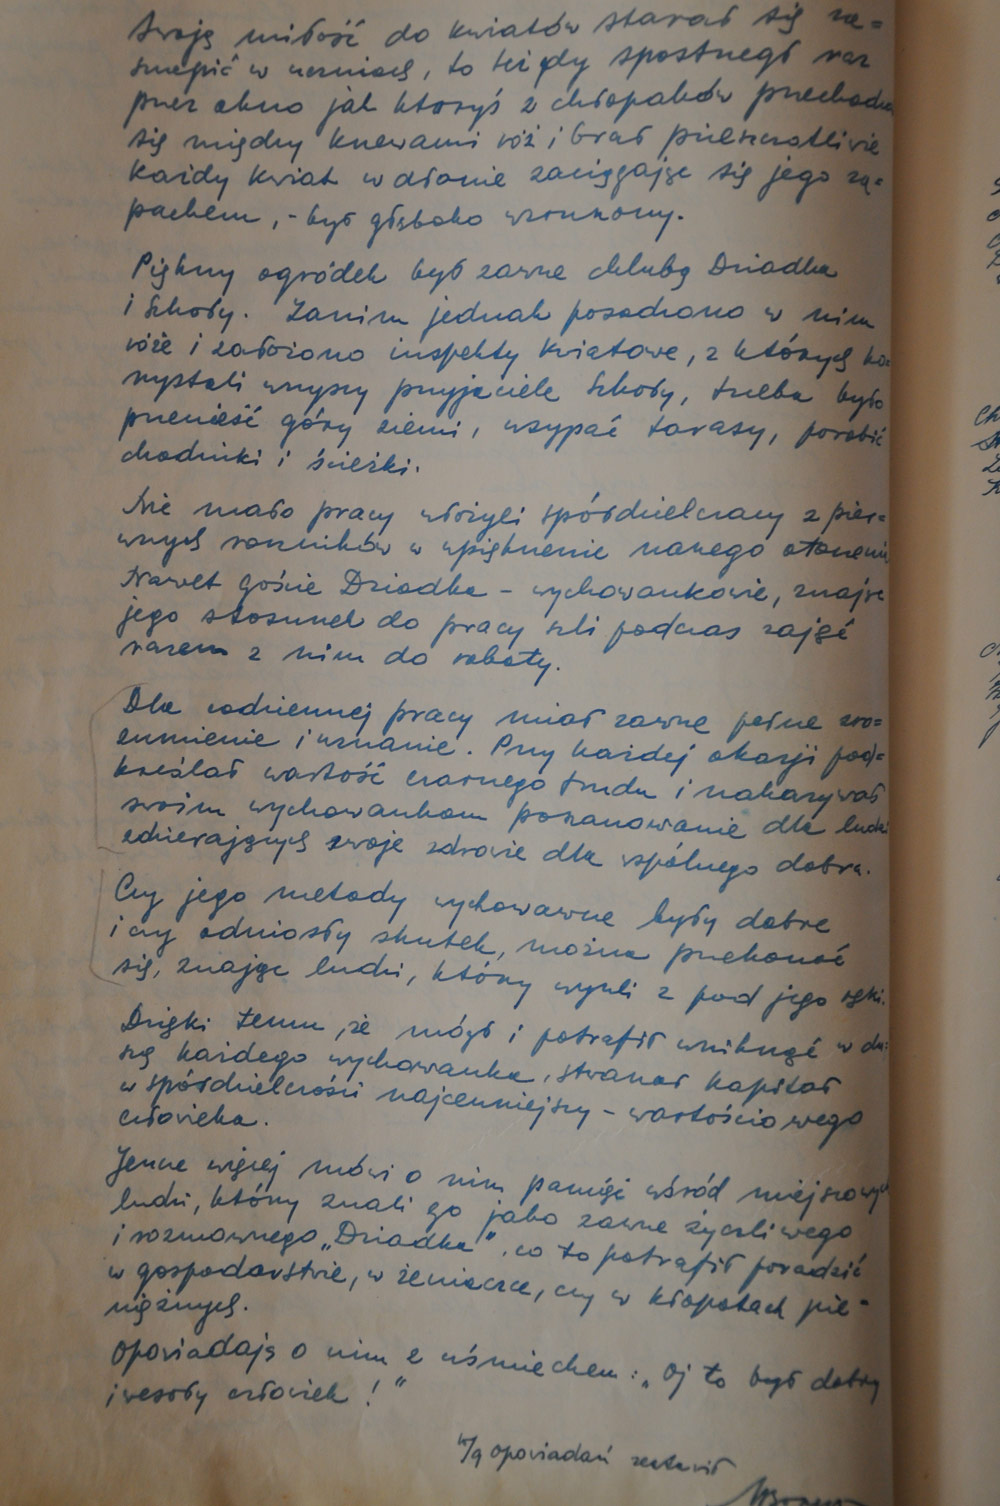 swoją miłość do kwiatów starał się za=
szczepić w uczniach, to kiedy spostrzegł raz
przez okno jak któryś z chłopaków przechadza
się między krzewami róż i brał pieszczotliwie
każdy kwiat w dłonie zaciągając się jego za=
pachem, - był głęboko wzruszony.
Piękny ogródek był zawsze chlubą Dziadka
i Szkoły. Zanim jednak posadzono w nim
róże i założono inspekty kwiatowe, z których ko=
rzystali wszyscy przyjaciele Szkoły, trzeba było
przenieść góry ziemi, usypać tarasy, porobić
chodniki i ścieżki.
Nie mało pracy włożyli spółdzielczacy z pier=
wszych roczników w upiększenie naszego otoczenia
Nawet goście Dziadka - wychowankowie, znając
jego stosunek do pracy szli podczas zajęć
razem z nim do roboty.
Dla codziennej pracy miał zawsze pełne zro=
zumienie i uznanie. Przy każdej okazji pod=
kreślał wartość czarnego trudu i nakazywał
swoim wychowankom poszanowanie dla ludzi
zdzierających swoje zdrowie dla wspólnego dobra.
Czy jego metody wychowawcze były dobre
i czy odniosły skutek, można przekonać
się, znając ludzi, którzy wyszli z pod jego ręki.
Dzięki temu, że mógł i potrafił wniknąć w du=
szę każdego wychowanka, stwarzał kapitał
w spółdzielczości najcenniejszy - wartościowego
człowieka.
Jeszcze więcej mówi o nim pamięć wśród miejscowych
ludzi, którzy znali go jako zawsze życzliwego
i rozmownego „Dziadka", co to potrafił poradzić
w gospodarstwie, w żeniaczce, czy w kłopotach pie=
niężnych.
Opowiadają o nim z uśmiechem: „Oj to był dobry
i wesoły człowiek!"
W/g opowiadań zestawił